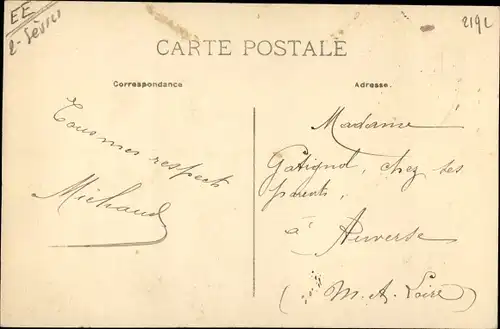 EE
2-Sèvres
219L
CARTE POSTALE
Correspondance
Adresse.
Tous mes respects
Michaud
Madame
Gatignol, chez ses
parents,
à Auverse
(M. A. Loire)